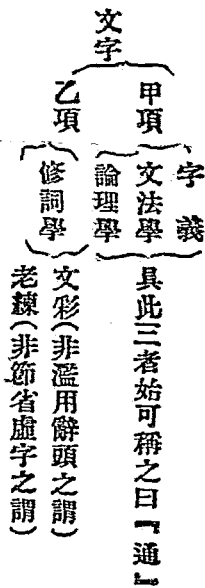 文字
甲項
字義
文法學
論理學
具此三者始可稱之曰『通』
乙項
修詞學
文彩(非濫用辭頭之謂)
老鍊(非節省虛字之謂)